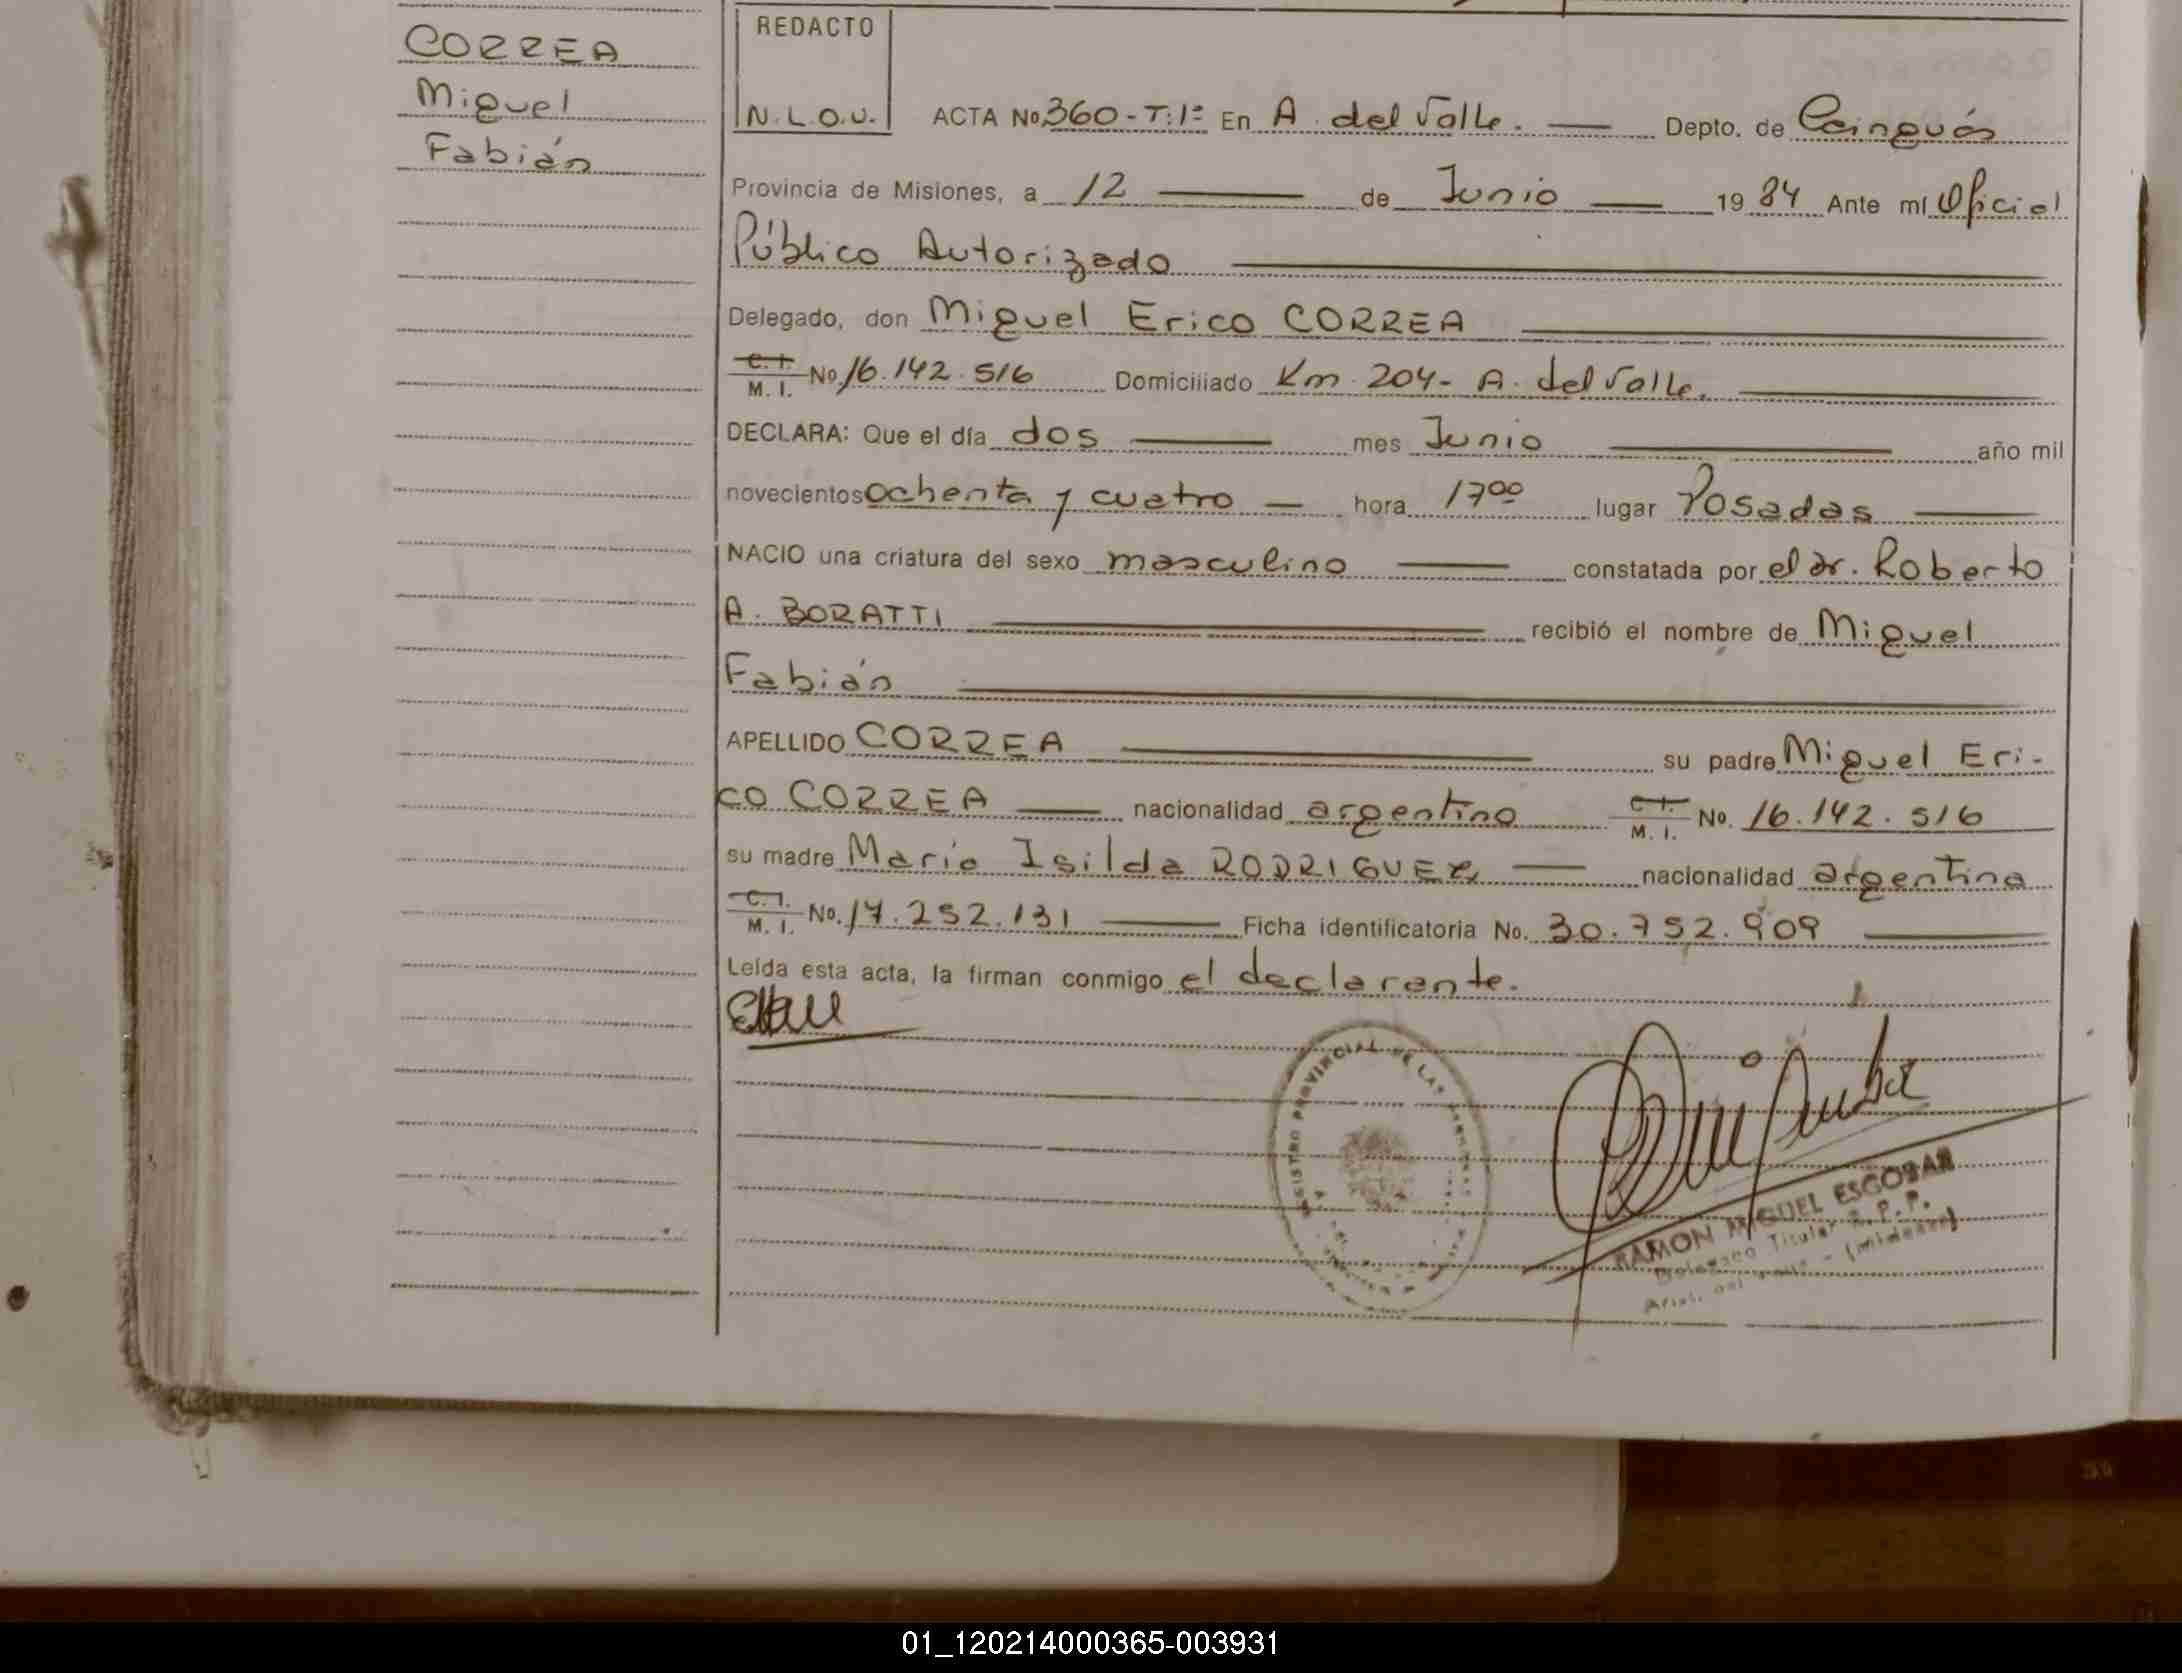 CORREA
Miguel
Fabián
REDACTO
N.L.O.U.
ACTA No 360-T:1º En A. del Valle. Depto. de Cainguás
Provincia de Misiones, a 12 de Junio 1984 Ante mí Oficial
Público Autorizado
Delegado, don Miguel Erico CORREA
C. I.
M. I. No 16.142.516 Domiciliado Km. 204- A. del Valle.
DECLARA: Que el día dos mes Junio año mil
novecientos ochenta y cuatro hora 17⁰⁰ lugar Posadas
NACIO una criatura del sexo masculino constatada por el dr. Roberto
A. BORATTI recibió el nombre de Miguel
Fabián
APELLIDO CORREA su padre Miguel Eri-
co CORREA nacionalidad argentino C. I. M. I. No. 16.142.516
su madre María Isilda RODRIGUEZ nacionalidad argentina
C. I.
M. I. No. 17.252.131 Ficha identificatoria No. 30.752.909
Leída esta acta, la firman conmigo el declarante.
REGISTRO PROVINCIAL DE LAS
RAMON MIGUEL ESCOBAR
Delegado Titular R. P. P.
(Misiones)
01_120214000365-003931